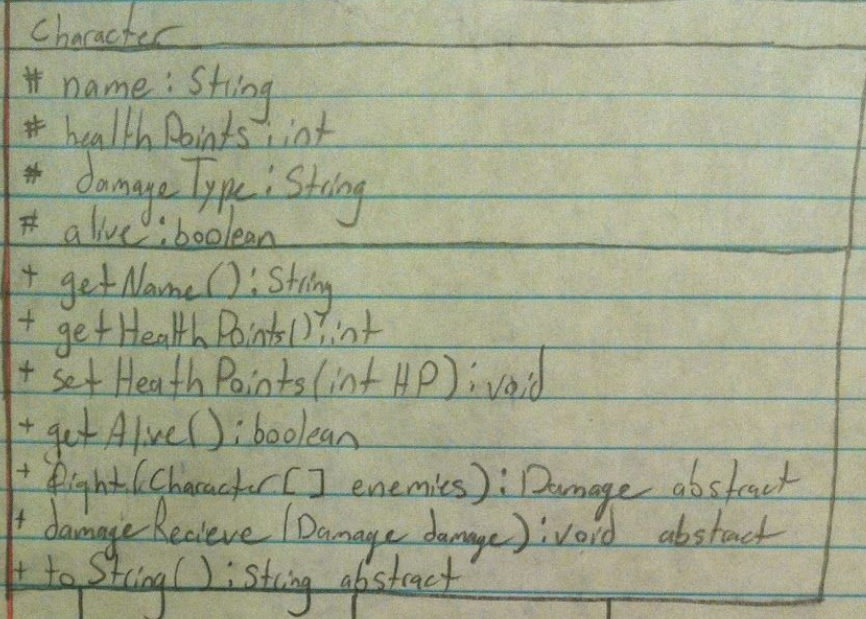 Character
# name : String
# healthPoints : int
# damageType : String
# alive : boolean
+ getName() : String
+ getHealthPoints() : int
+ setHeathPoints(int HP) : void
+ getAlive() : boolean
+ fight(Character[] enemies) : Damage abstract
+ damageRecieve (Damage damage) : void abstract
+ toString() : String abstract